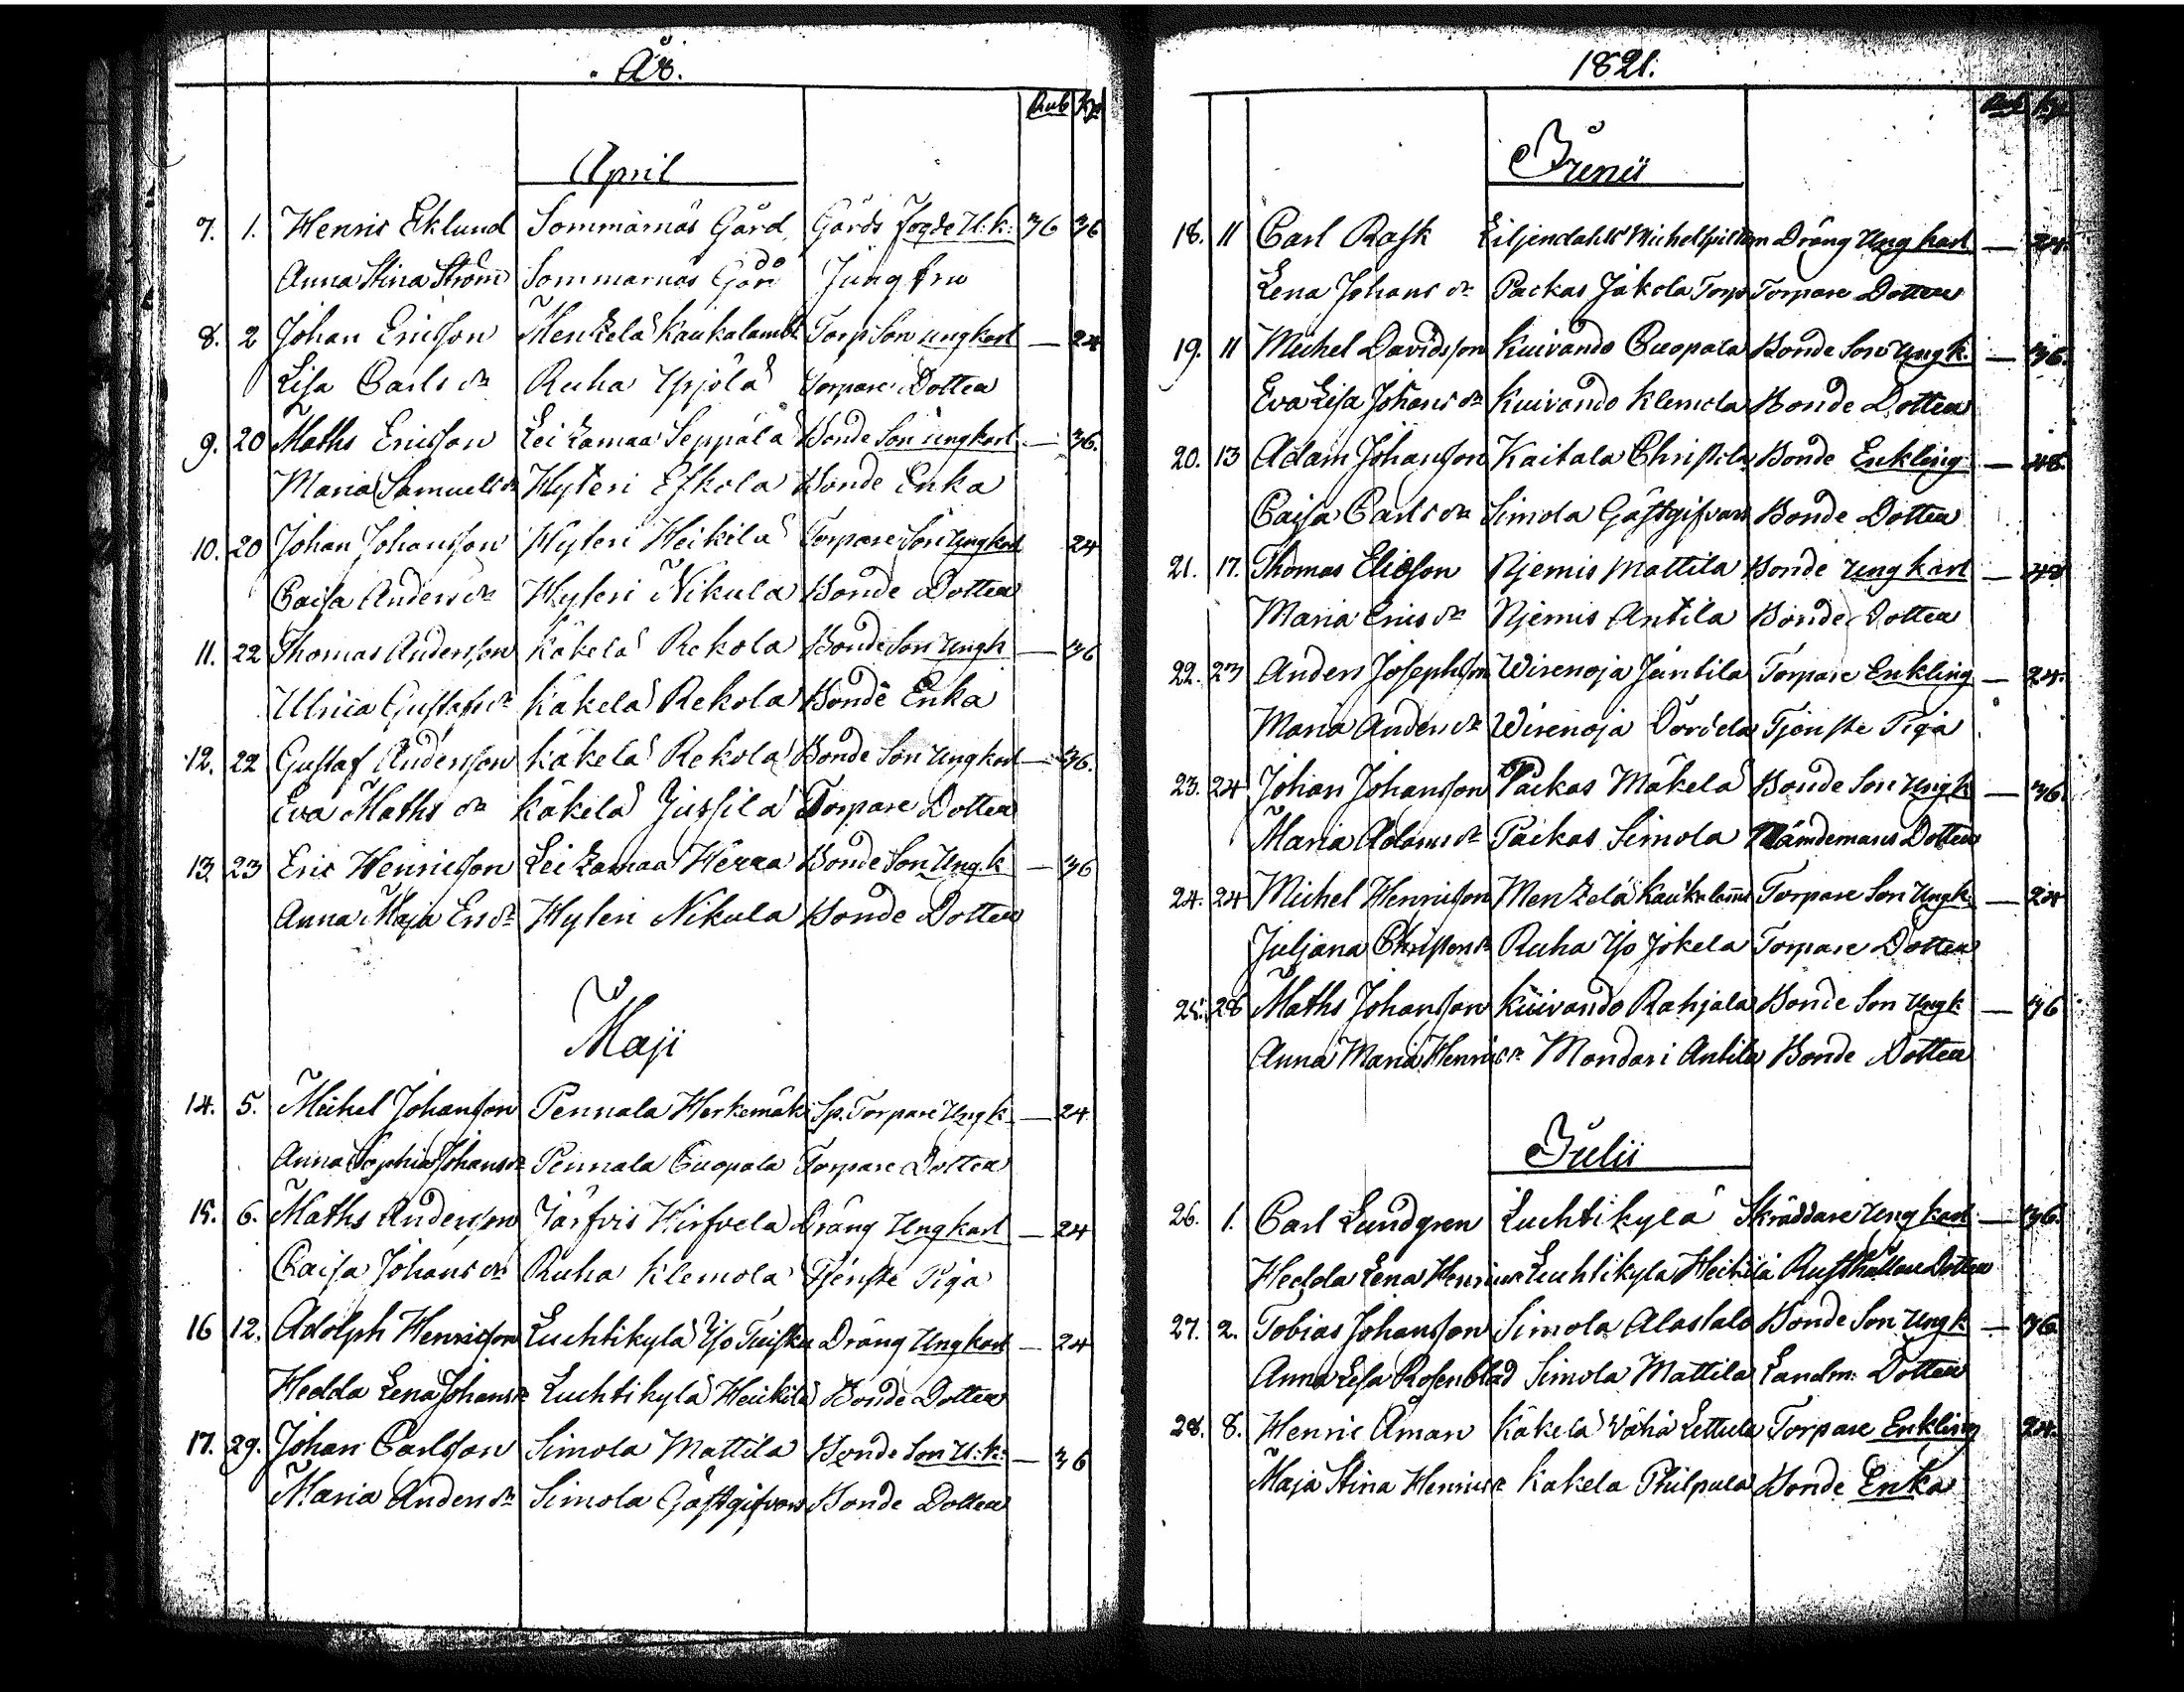 År.
Rub Kp
April
7. 1. Henric Eklund Sommarnäs Gård Gårds fogde U:k: 36 36
Anna Stina Ström Sommarnäs Gård do Jungfru
8. 2 Johan Ericsson Menzelä Kaukalambi Torp Son ungkarl — 24
Lisa Carls dr Ruha Yrjölä Torpare Dotter
9. 20 Maths Ericsson Leizamaa Seppälä Bonde Son ungkarl — 36.
Maria Samuels dr Hyteri Eskola Bonde Enka
10. 20 Johan Johansson Hyteri Heikilä Torpare Son Ungkarl 24
Caisa Anders dr Hyteri Nikula Bonde Dotter
11. 22 Thomas Andersson Käkelä Rekola Bonde Son Ungk — 36
Ulrica Gustafs dr Käkelä Rekola Bonde Enka
12. 22 Gustaf Andersson Käkelä Rekola Bonde Son Ungkarl — 36.
Eva Maths dr Käkelä Jussila Torpare Dotter
13. 23 Eric Henricsson Leizamaa Herra Bonde Son Ung.k — 36
Anna Maja Ers dr Hyteri Nikula Bonde Dotter
Maji
14. 5. Michel Johansson Pennala Herkemäk Sp. Torpare Ungk — 24
Anna Sophia Johans dr Pennala Cuopala Torpare Dotter
15. 6. Maths Andersson Järfvis Hirfvela Dräng Ungkarl — 24
Caisa Johans dr Ruha Klemola Tjenste Piga
16 12. Adolph Henricsson Luchtikylä Yso Tuisku Dräng Ungkarl — 24
Hedda Lena Johans dr Luchtikylä Heikilä Bonde Dotter
17. 29. Johan Carlsson Simola Mattila Bonde Son U:k: — 36
Maria Anders dr Simola Gästgifvars Bonde Dotter
1821.
Rub Kp
Junii
18. 11 Carl Rask Liljendahls Michelspiltom Dräng Ungkarl — 24.
Lena Johans dr Packas Jäkola Torp Torpare Dotter
19. 11 Michel Davidsson Kuivando Cuopala Bonde Son Ungk. — 36.
Eva Lisa Johans dr Kuivando Klemola Bonde Dotter
20. 13 Adam Johansson Kaitala Christola Bonde Enkling — 48
Caisa Carls dr Simola Gästgifvars Bonde Dotter
21. 17. Thomas Eliasson Njemis Mattila Bonde Ungkarl — 48
Maria Erics dr Njemis Antila Bonde Dotter
22. 23 Anders Josephsson Wirenoja Jäntila Torpare Enkling — 24.
Maria Anders dr Wirenoja Tjenste Piga
23. 24 Johan Johansson Paekas Mäkelä Bonde Son Ungk — 36
Maria Adams dr Paekas Simola Nämdemans Dotter
24. 24 Michel Henricsson Menzelä Kaukalami Torpare Son Ungk. — 24
Juljana Christers dr Ruha Yso Jokela Torpare Dotter
25. 28 Maths Johansson Kuivando Rahjala Bonde Son Ungk — 36
Anna Maria Henrics dr Mondari Antila Bonde Dotter
Julii
26. 1. Carl Lundgren Luchtikylä Skräddare Ungkarl — 36.
Hedda Lena Henrics dr Luchtikyla Heikilä Rusthållare Dotter
27. 2. Tobias Johansson Simola Alastalo Bonde Son Ungk — 36
Anna Lisa Rosenblad Simola Mattila Landm: Dotter
28. 8. Henric Åman Käkelä Vähä Lettula Torpare Enkling 24.
Maja Stina Henrics dr Kakela Philpula Bonde Enka